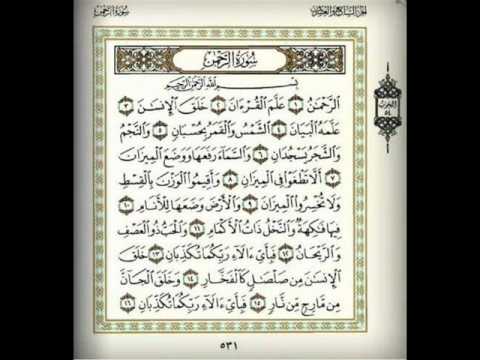 سُورَةُ الرَّحْمَٰن
الجزء السابع والعشرون
سُورَةُ الرَّحْمَٰن
بِسْمِ اللَّهِ الرَّحْمَٰنِ الرَّحِيمِ
الرَّحْمَٰنُ ١ عَلَّمَ الْقُرْءَانَ ٢ خَلَقَ الْإِنسَٰنَ ٣
عَلَّمَهُ الْبَيَانَ ٤ الشَّمْسُ وَالْقَمَرُ بِحُسْبَانٍ ٥ وَالنَّجْمُ
وَالشَّجَرُ يَسْجُدَانِ ٦ وَالسَّمَاءَ رَفَعَهَا وَوَضَعَ الْمِيزَانَ
٧ أَلَّا تَطْغَوْا فِي الْمِيزَانِ ٨ وَأَقِيمُوا الْوَزْنَ بِالْقِسْطِ
وَلَا تُخْسِرُوا الْمِيزَانَ ٩ وَالْأَرْضَ وَضَعَهَا لِلْأَنَامِ ١٠
فِيهَا فَٰكِهَةٌ وَالنَّخْلُ ذَاتُ الْأَكْمَامِ ١١ وَالْحَبُّ ذُو الْعَصْفِ
وَالرَّيْحَانُ ١٢ فَبِأَيِّ ءَالَاءِ رَبِّكُمَا تُكَذِّبَانِ ١٣ خَلَقَ
الْإِنسَٰنَ مِن صَلْصَٰلٍ كَالْفَخَّارِ ١٤ وَخَلَقَ الْجَانَّ
مِن مَّارِجٍ مِّن نَّارٍ ١٥ فَبِأَيِّ ءَالَاءِ رَبِّكُمَا تُكَذِّبَانِ ١٦
الحزب
٥٤
٥٣١